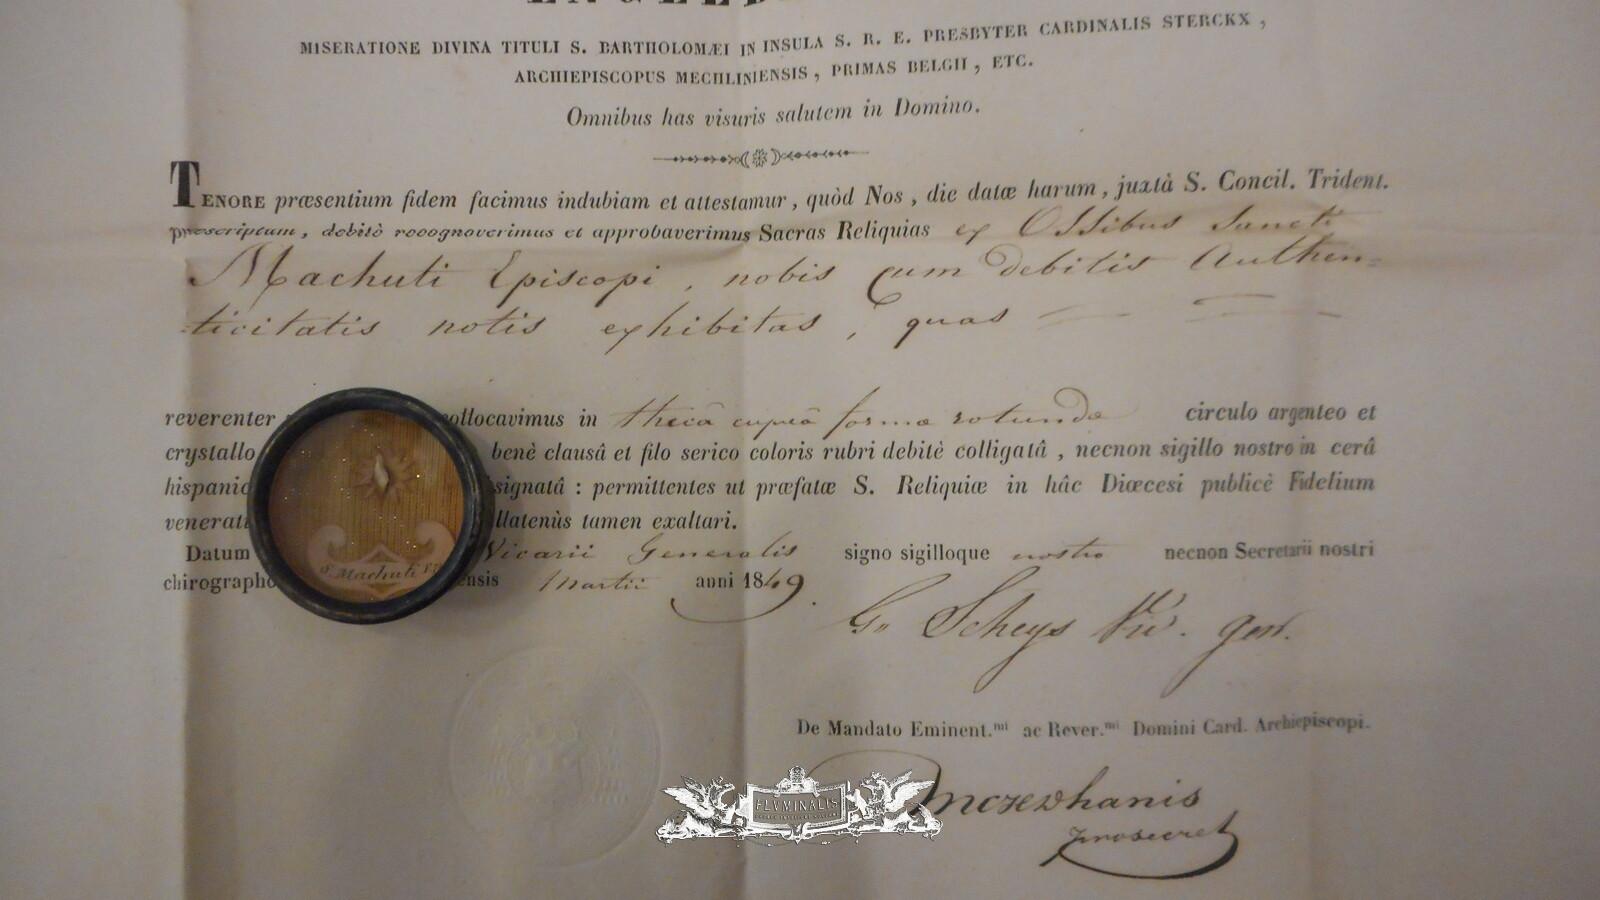 MISERATIONE DIVINA TITULI S. BARTHOLOMÆI IN INSULA S. R. E. PRESBYTER CARDINALIS STERCKX,
ARCHIEPISCOPUS MECHLINIENSIS, PRIMAS BELGII, ETC.
Omnibus has visuris salutem in Domino.
TENORE præsentium fidem facimus indubiam et attestamur, quòd Nos, die datæ harum, juxtà S. Concil. Trident.
præscriptum, debitè recognoverimus et approbaverimus Sacras Reliquias ex Ossibus Sancti
Machuti Episcopi, nobis cum debitis Authen=
ticitatis notis exhibitas, quas
reverenter collocavimus in thecâ cupreâ formæ rotundæ circulo argenteo et
crystallo benè clausâ et filo serico coloris rubri debitè colligatâ, necnon sigillo nostro in cerâ
signatâ : permittentes ut præfatæ S. Reliquiæ in hâc Diœcesi publicè Fidelium
llatenùs tamen exaltari.
Datum Vicarii Generalis signo sigilloque nostro necnon Secretarii nostri
chirographo ensis Martii anni 1849.
S. Machuti
G. Scheys Vic. gen.
De Mandato Eminent.mi ac Rever.mi Domini Card. Archiepiscopi.
prosecret
FLVMINALIS